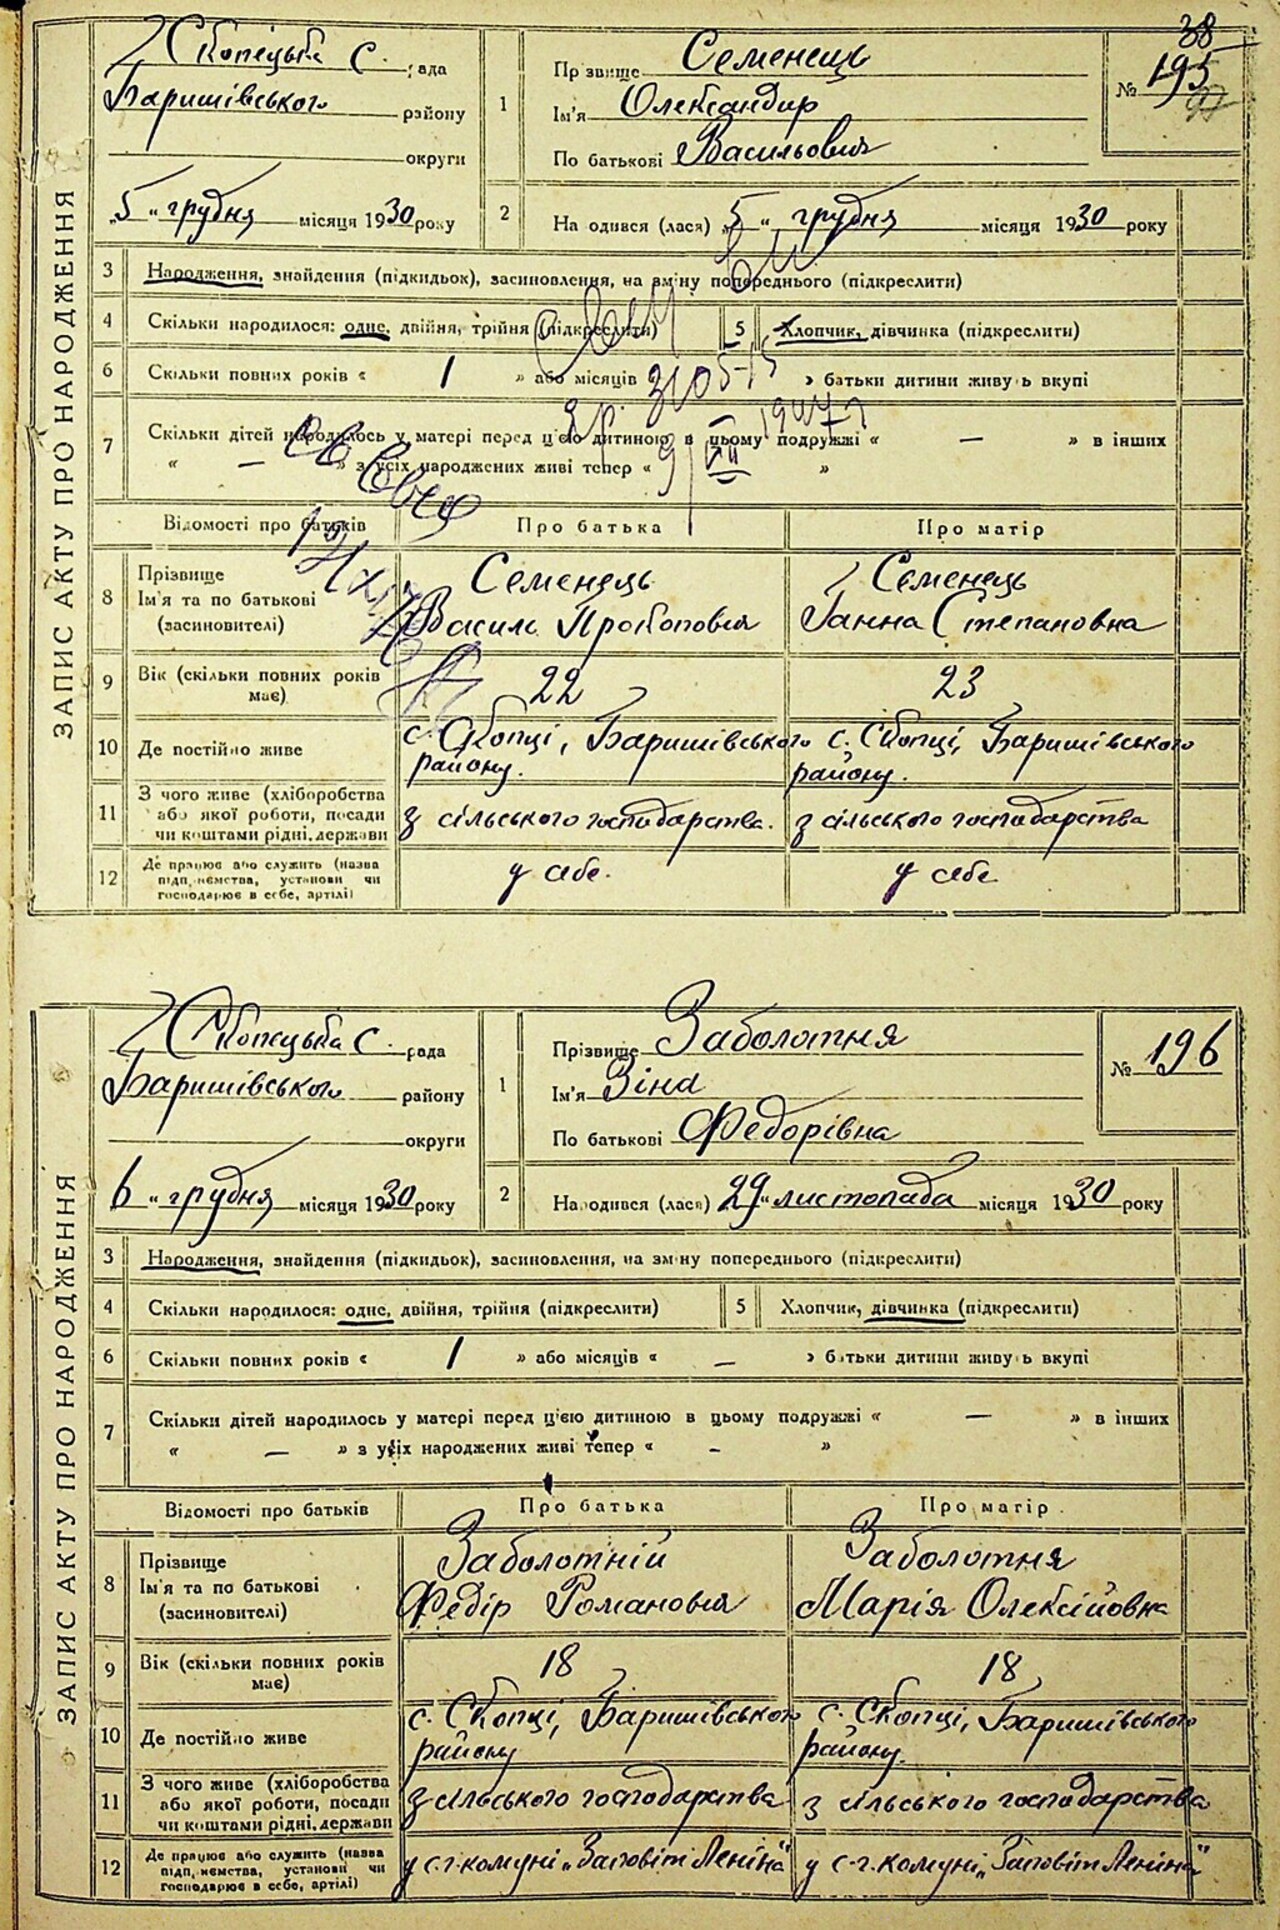 38
ЗАПИС АКТУ ПРО НАРОДЖЕННЯ
Скопецька с. рада
Баришівського району
округи
"5" грудня місяця 1930 року
1
Прізвище Семенець
Ім'я Олександр
По батькові Васильович
№ 195
2 На одився (лася) "5" грудня місяця 1930 року
3 Народження, знайдення (підкидьок), засиновлення, на зміну попереднього (підкреслити)
4 Скільки народилося: одне, двійня, трійня (підкреслити) 5 Хлопчик, дівчинка (підкреслити)
6 Скільки повних років « 1 » або місяців » батьки дитини живуть вкупі
7 Скільки дітей народилось у матері перед цією дитиною в цьому подружжі « — » в інших
« — » з усіх народжених живі тепер « »
Відомості про батьків Про батька Про матір
8 Прізвище Ім'я та по батькові (засиновителі)
Семенець Василь Прокопович
Семенець Ганна Степановна
9 Вік (скільки повних років має) 22 23
10 Де постійно живе
с. Скопці, Баришівського району.
с. Скопці, Баришівського району.
11 З чого живе (хліборобства або якої роботи, посади чи коштами рідні, держави
з сільського господарства.
з сільського господарства
12 Де працює або служить (назва підприємства, установи чи господарює в себе, артілі)
у себе.
у себе
ЗАПИС АКТУ ПРО НАРОДЖЕННЯ
Скопецька с. рада
Баришівського району
округи
6 " грудня місяця 1930 року
1
Прізвище Заболотня
Ім'я Зіна
По батькові Федорівна
№ 196
2 Народився (лася) 29 " листопада місяця 1930 року
3 Народження, знайдення (підкидьок), засиновлення, на зміну попереднього (підкреслити)
4 Скільки народилося: одне, двійня, трійня (підкреслити) 5 Хлопчик, дівчинка (підкреслити)
6 Скільки повних років « 1 » або місяців « — » батьки дитини живуть вкупі
7 Скільки дітей народилось у матері перед цією дитиною в цьому подружжі « — » в інших
« — » з усіх народжених живі тепер « — »
Відомості про батьків Про батька Про матір
8 Прізвище Ім'я та по батькові (засиновителі)
Заболотній Федір Романович
Заболотня Марія Олексійовна
9 Вік (скільки повних років має) 18 18
10 Де постійно живе
с. Скопці, Баришівського району
с. Скопці, Баришівського району.
11 З чого живе (хліборобства або якої роботи, посади чи коштами рідні, держави
з сільського господарства
з сільського господарства
12 Де працює або служить (назва підприємства, установи чи господарює в себе, артілі)
у с.г. комуні "Заповіт Леніна"
у с.г. комуні "Заповіт Леніна"